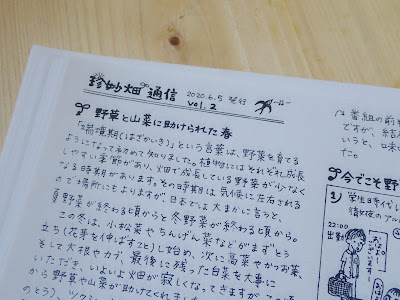 珍妙畑通信
2020.6.5 発行
vol.2
野草と山菜に助けられた春
「端境期(はざかいき)」という言葉は、野菜を育てる
ようになって初めて知りました。植物にはそれぞれ成長
しやすい季節があり、畑で成長している野菜が少なく
なる時期があります。その時期は気候に左右される
ので場所にもよりますが、日本では大まかに言うと、
夏野菜が終わる頃からと冬野菜が終わる頃から。
この冬は、小松菜やちんげん菜などがまずとう
立ち(花芽を伸ばすこと)し始め、次に高菜やかつお菜、
そして大根やカブ、最後に残った白菜を大事に
いただき、いよいよ畑が寂しくなってきますが
から野草や山菜が助けてくれまし
のとう)、ツクシ
番組の前
ですが、結
いうと、ロ
た。
今でこそ野
1) 学生時代
精勤夜のアル
22:00
出勤